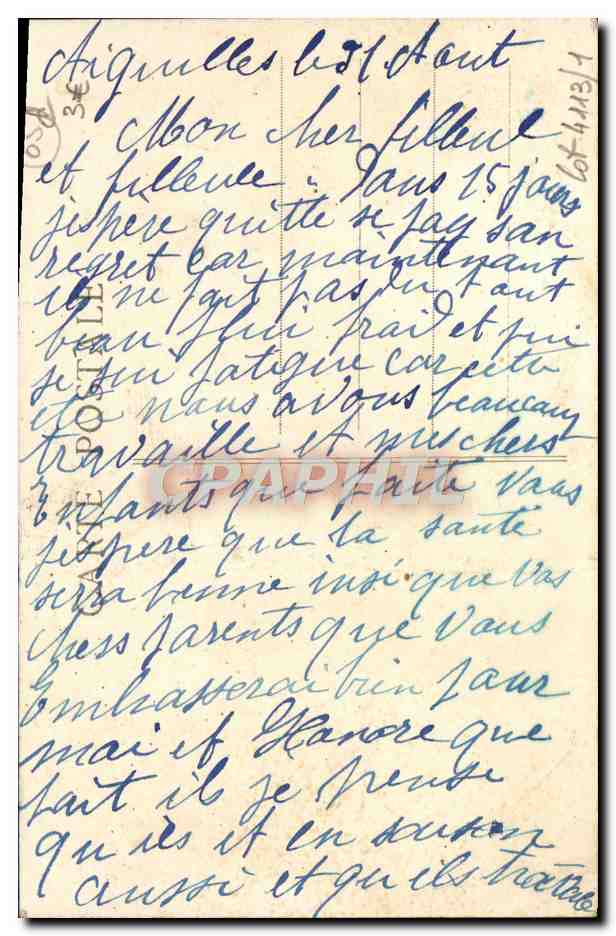 Aiguilles le 31 Aout
Mon cher filleul
et filleule. Dans 15 jours
jespère quitte se pay san
regret car maintenant
il ne fait pas du tout
beau plui fraid et pui
se sui fatigue car cette
ete nous avons beaucoup
travaille et mes chers
Enfants que faite vous
jespere que la santé
serra bonne insi que vos
chers parents que vous
Embasserai bien pour
moi et Honore que
fait il je pense
qu ils et en saison
aussi et qu ils
CARTE POSTALE
CPAPHIL
3€
lot 4113/1